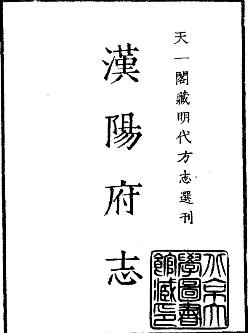 天一閣藏明代方志選刊
漢陽府志
北京大
學圖書
館藏印